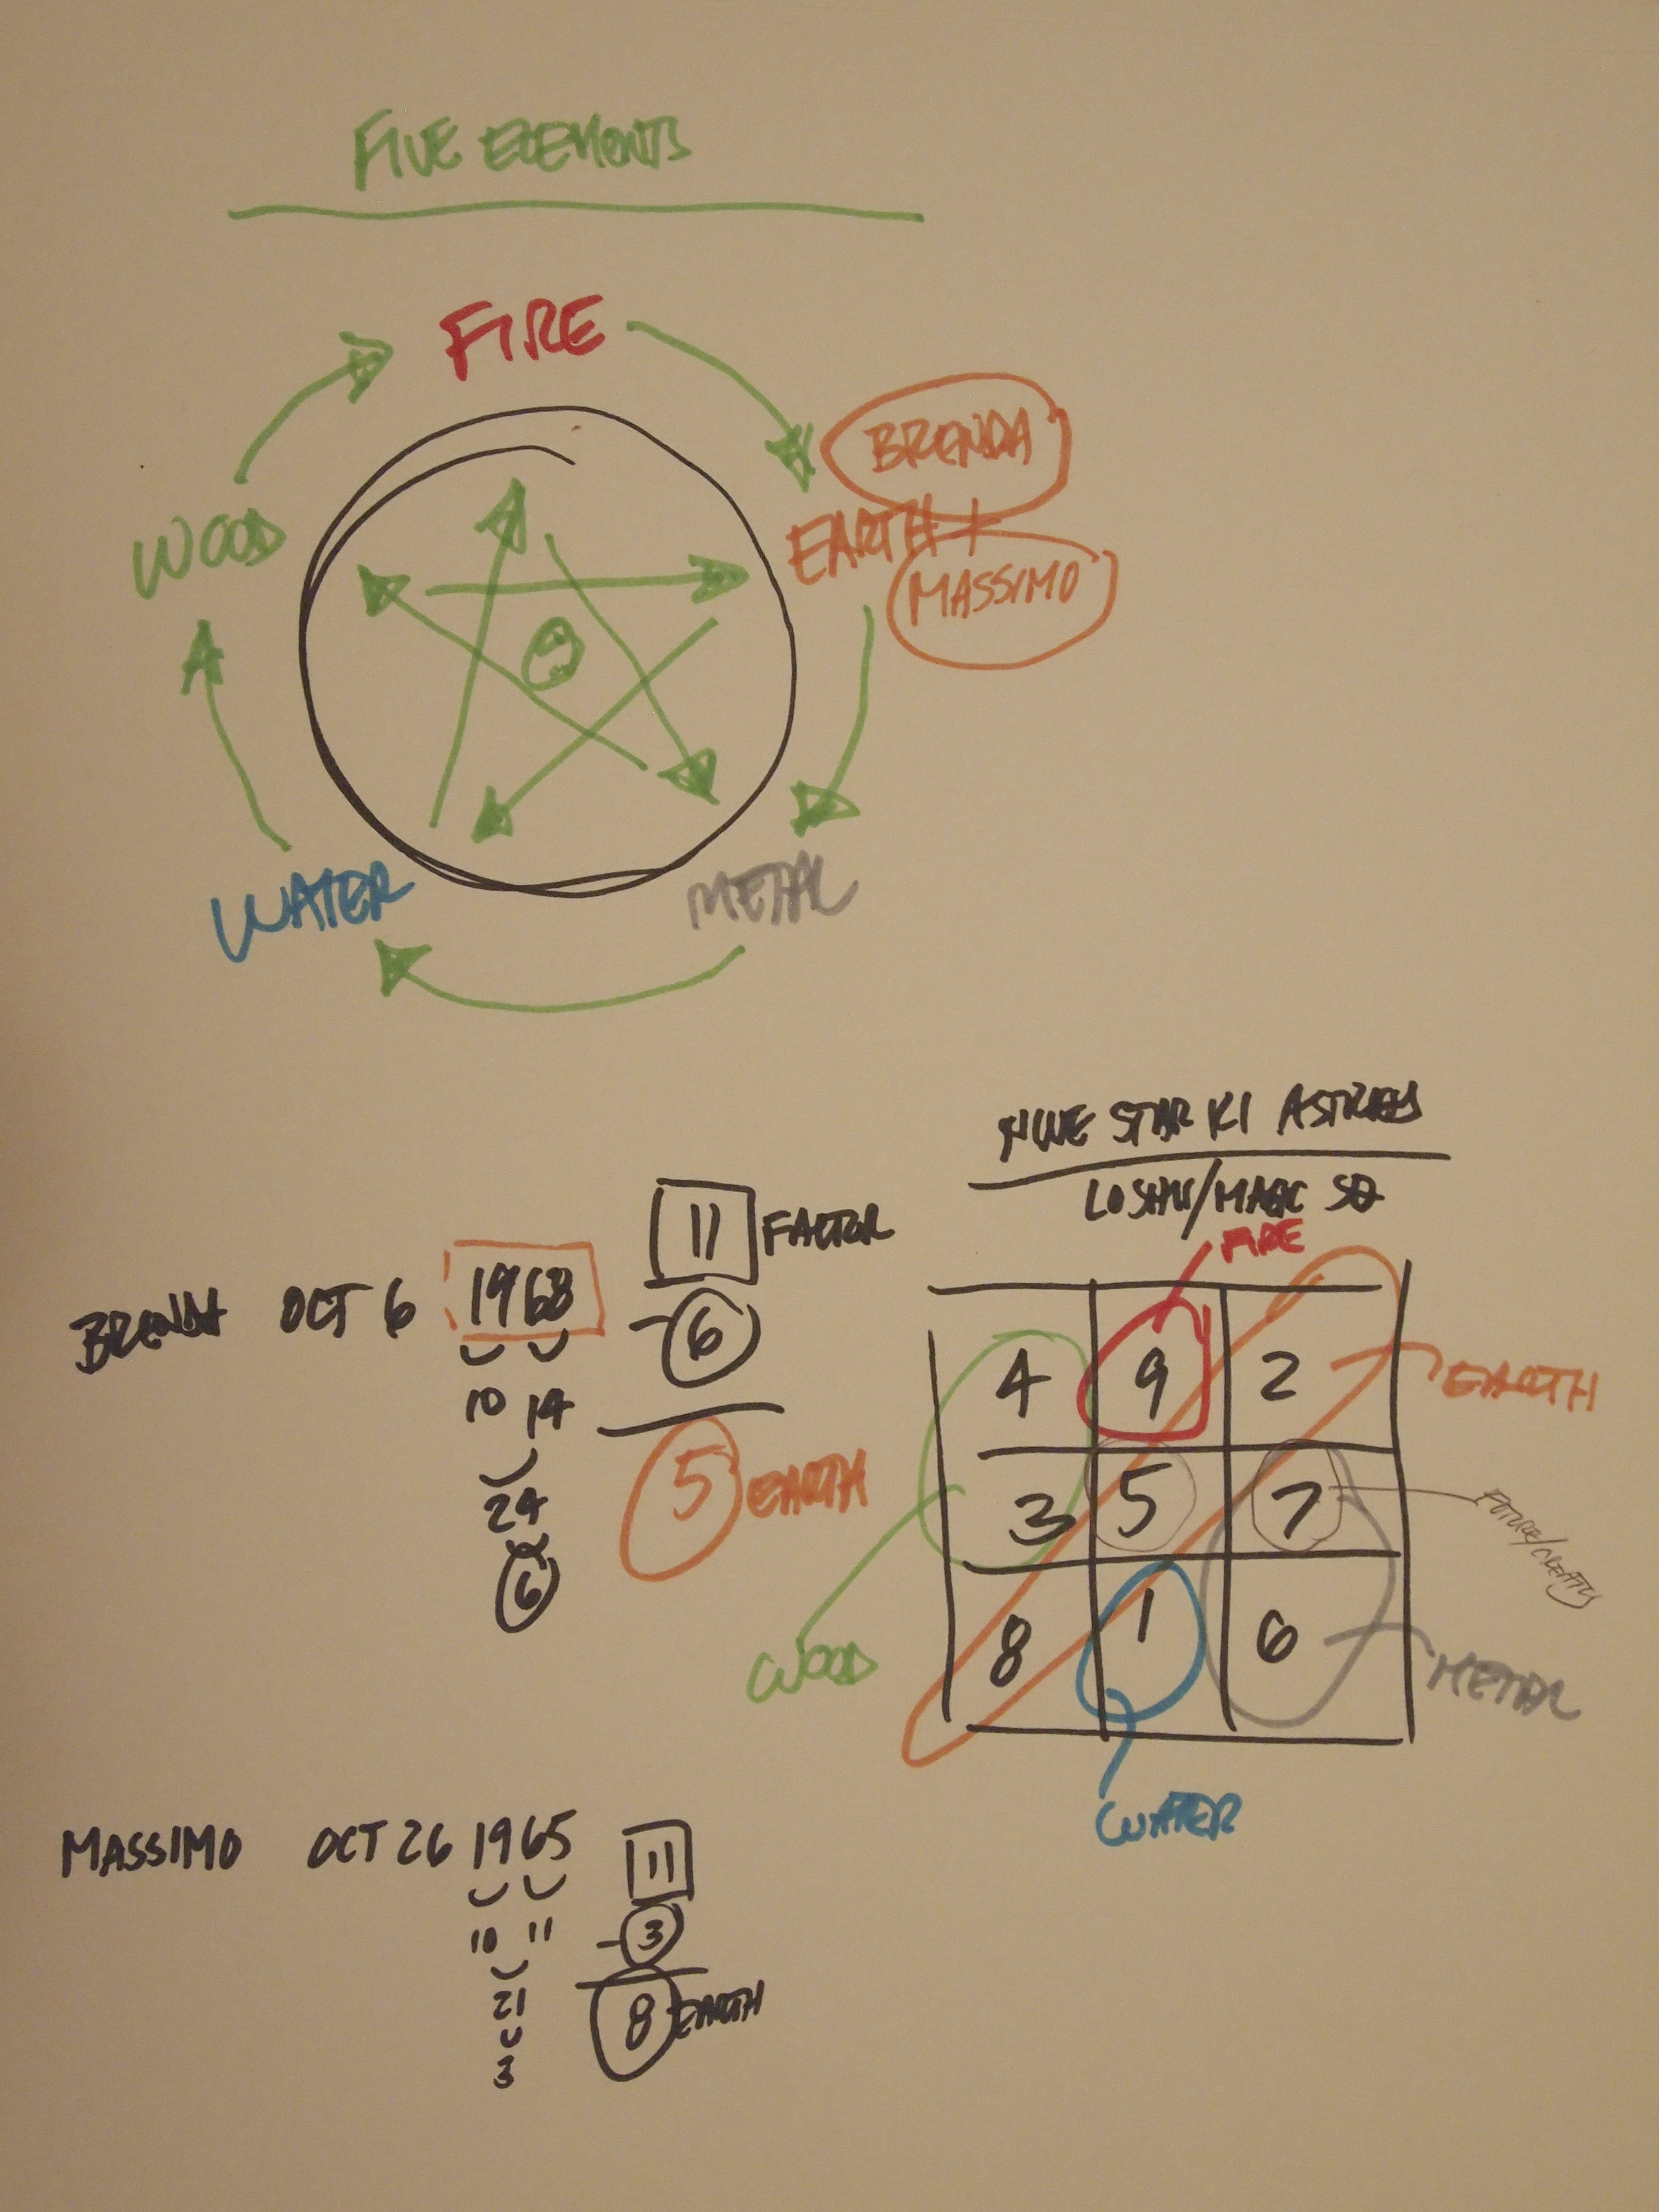 FIVE ELEMENTS
FIRE
BRENDA
WOOD
EARTH +
MASSIMO
WATER
METAL
NINE STAR KI
LOSHU/MAGIC SQ
FIRE
11 FACTOR
BRENDA OCT 6 1968
-6
10 14
5 EARTH
24
6
4 9 2
EARTH
3 5 7
FUTURE/
8 1 6
WOOD
METAL
WATER
MASSIMO OCT 26 1965
11
10 11
-3
21
8 EARTH
3